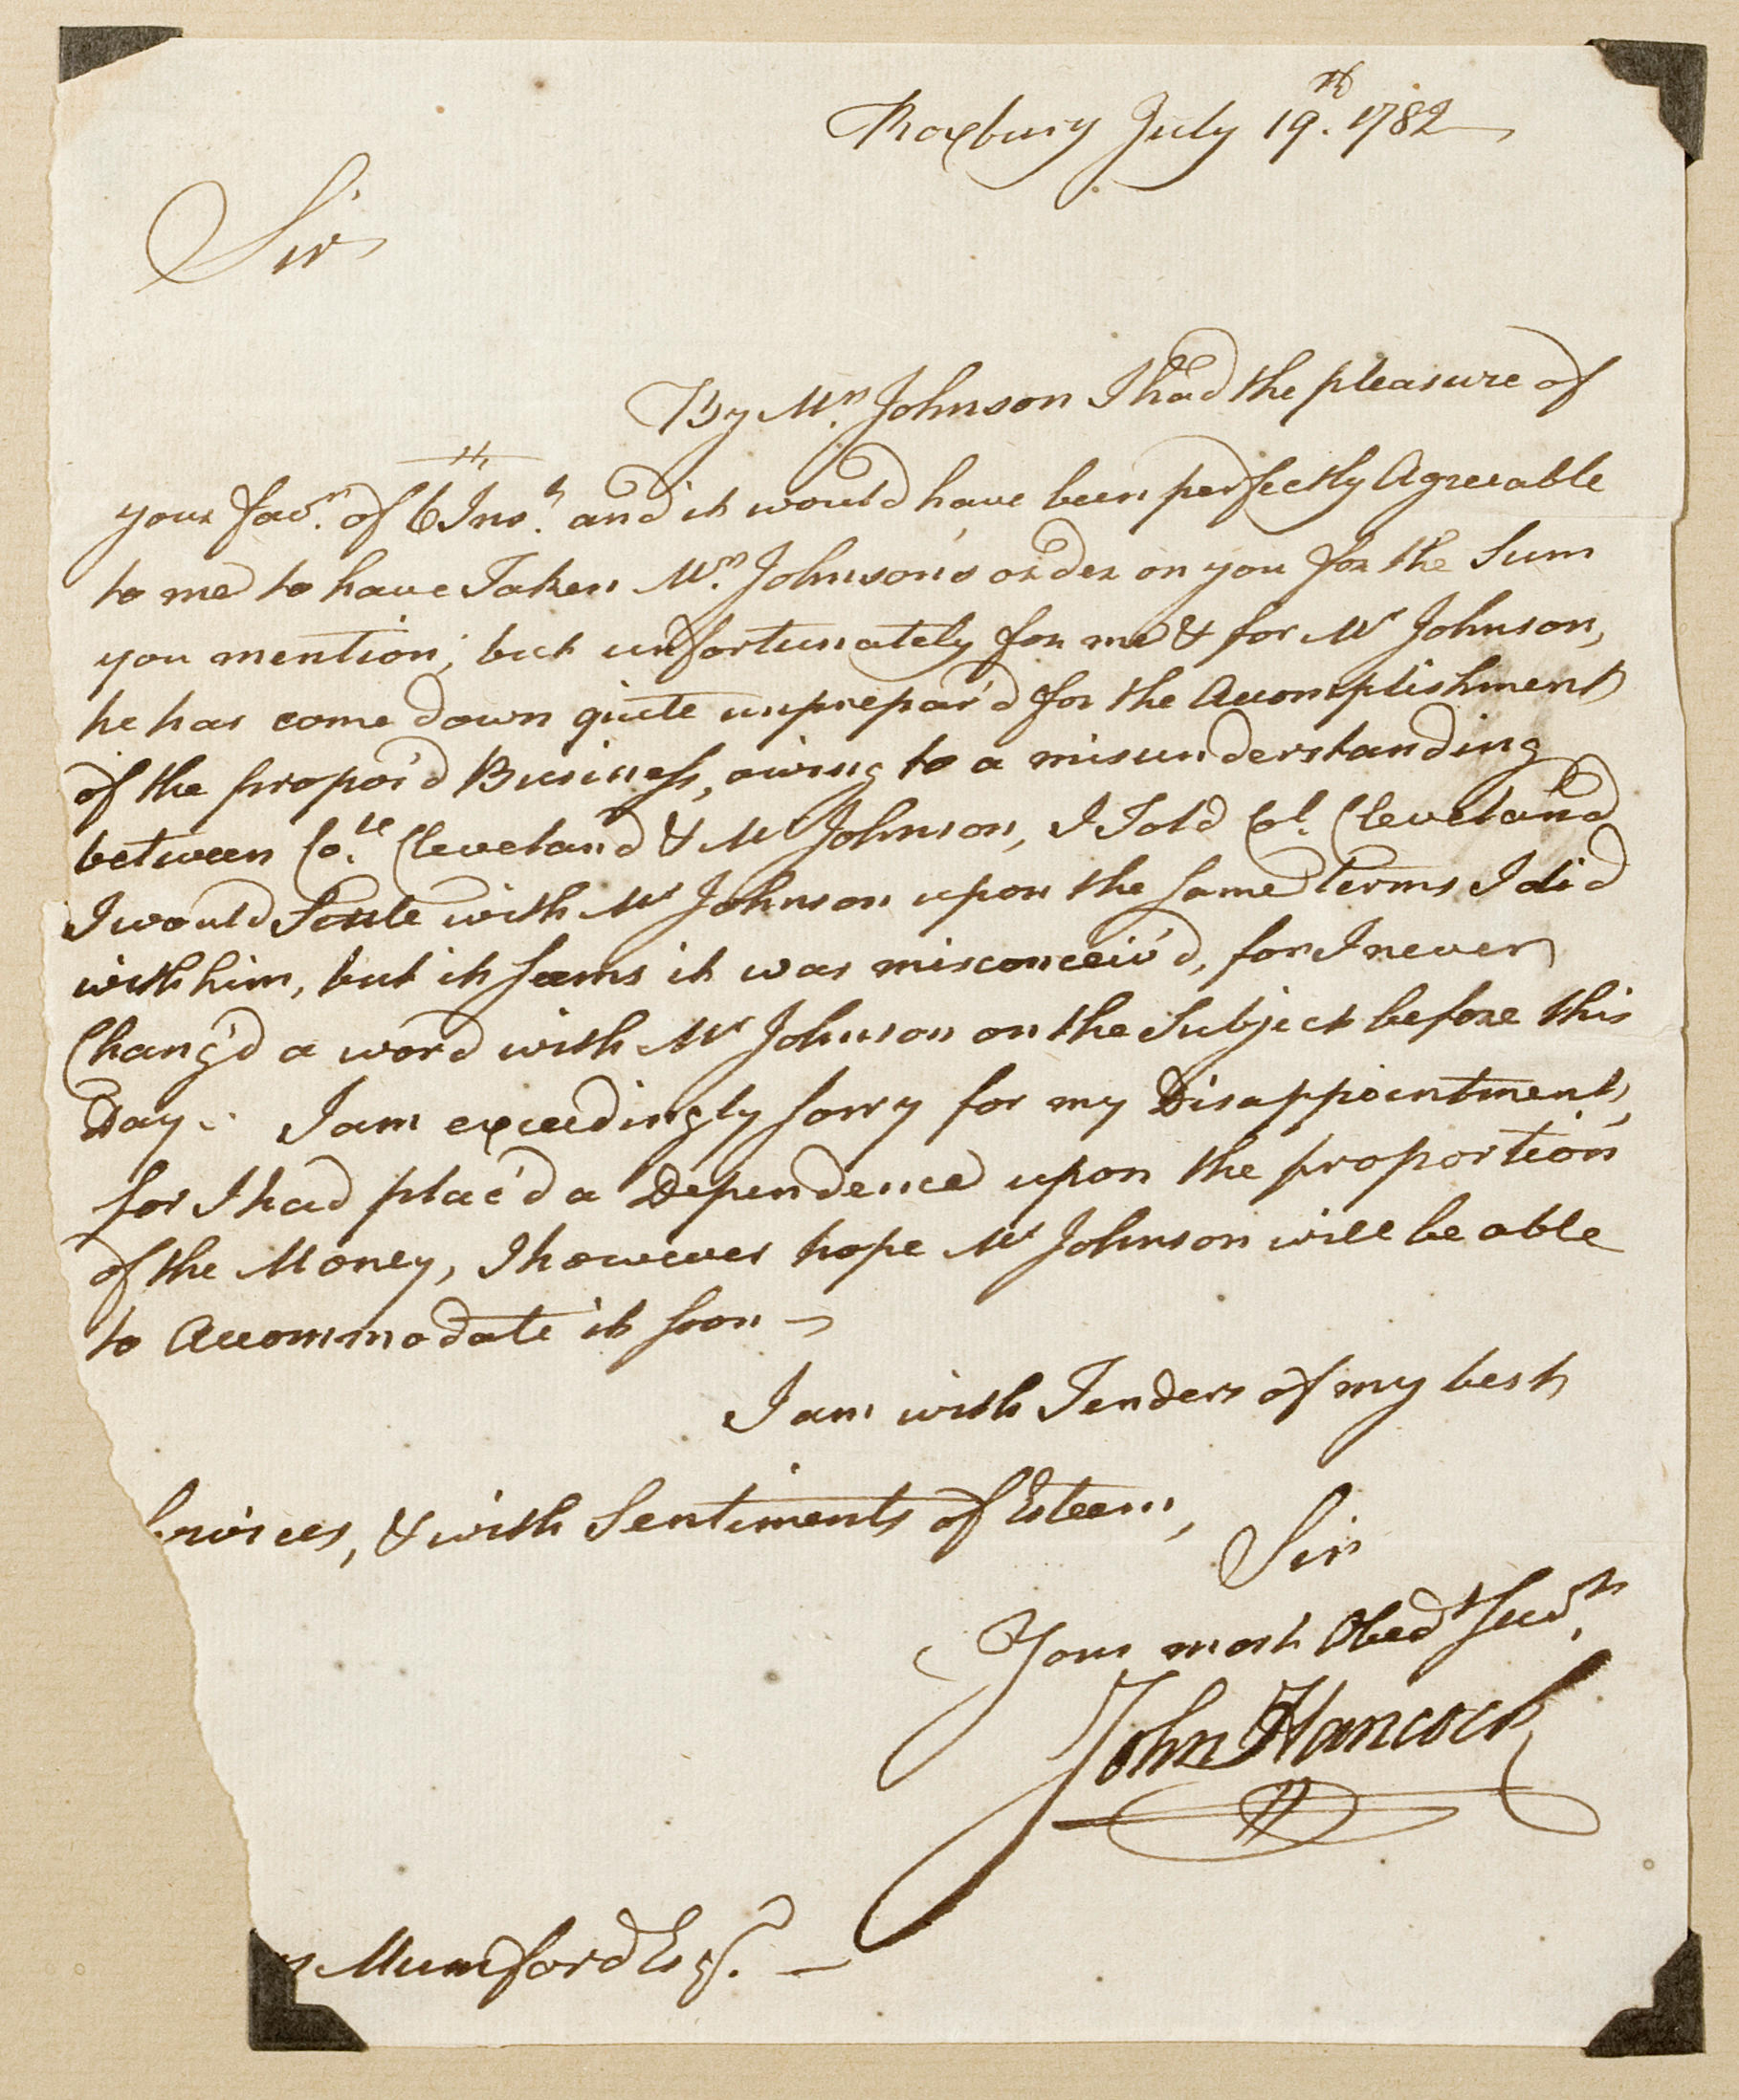 Roxbury July 19th. 1782
Sir
By Mr. Johnson I had the pleasure of
your favr. of 6th Inst. and it would have been perfectly Agreeable
to me to have Taken Mr. Johnson's order on you for the Sum
you mention; but unfortunately for me & for Mr Johnson,
he has come down quite unprepar'd for the Accomplishment
of the propos'd Business, owing to a misunderstanding
between Col. Cleveland & Mr Johnson, I Told Col. Cleveland
I would Settle with Mr Johnson upon the same terms I did
with him, but it seems it was misconceiv'd, for I never
Chang'd a word with Mr Johnson on the Subject before this
Day. I am exceedingly sorry for my Disappointment,
for I had plac'd a Dependence upon the proportion
of the Money, I however hope Mr Johnson will be able
to Accommodate it soon —
I am with Tenders of my best
Services, & with Sentiments of Esteem,
Sir
Your most Obedt Servt.
John Hancock
s Mumford Esqr. —